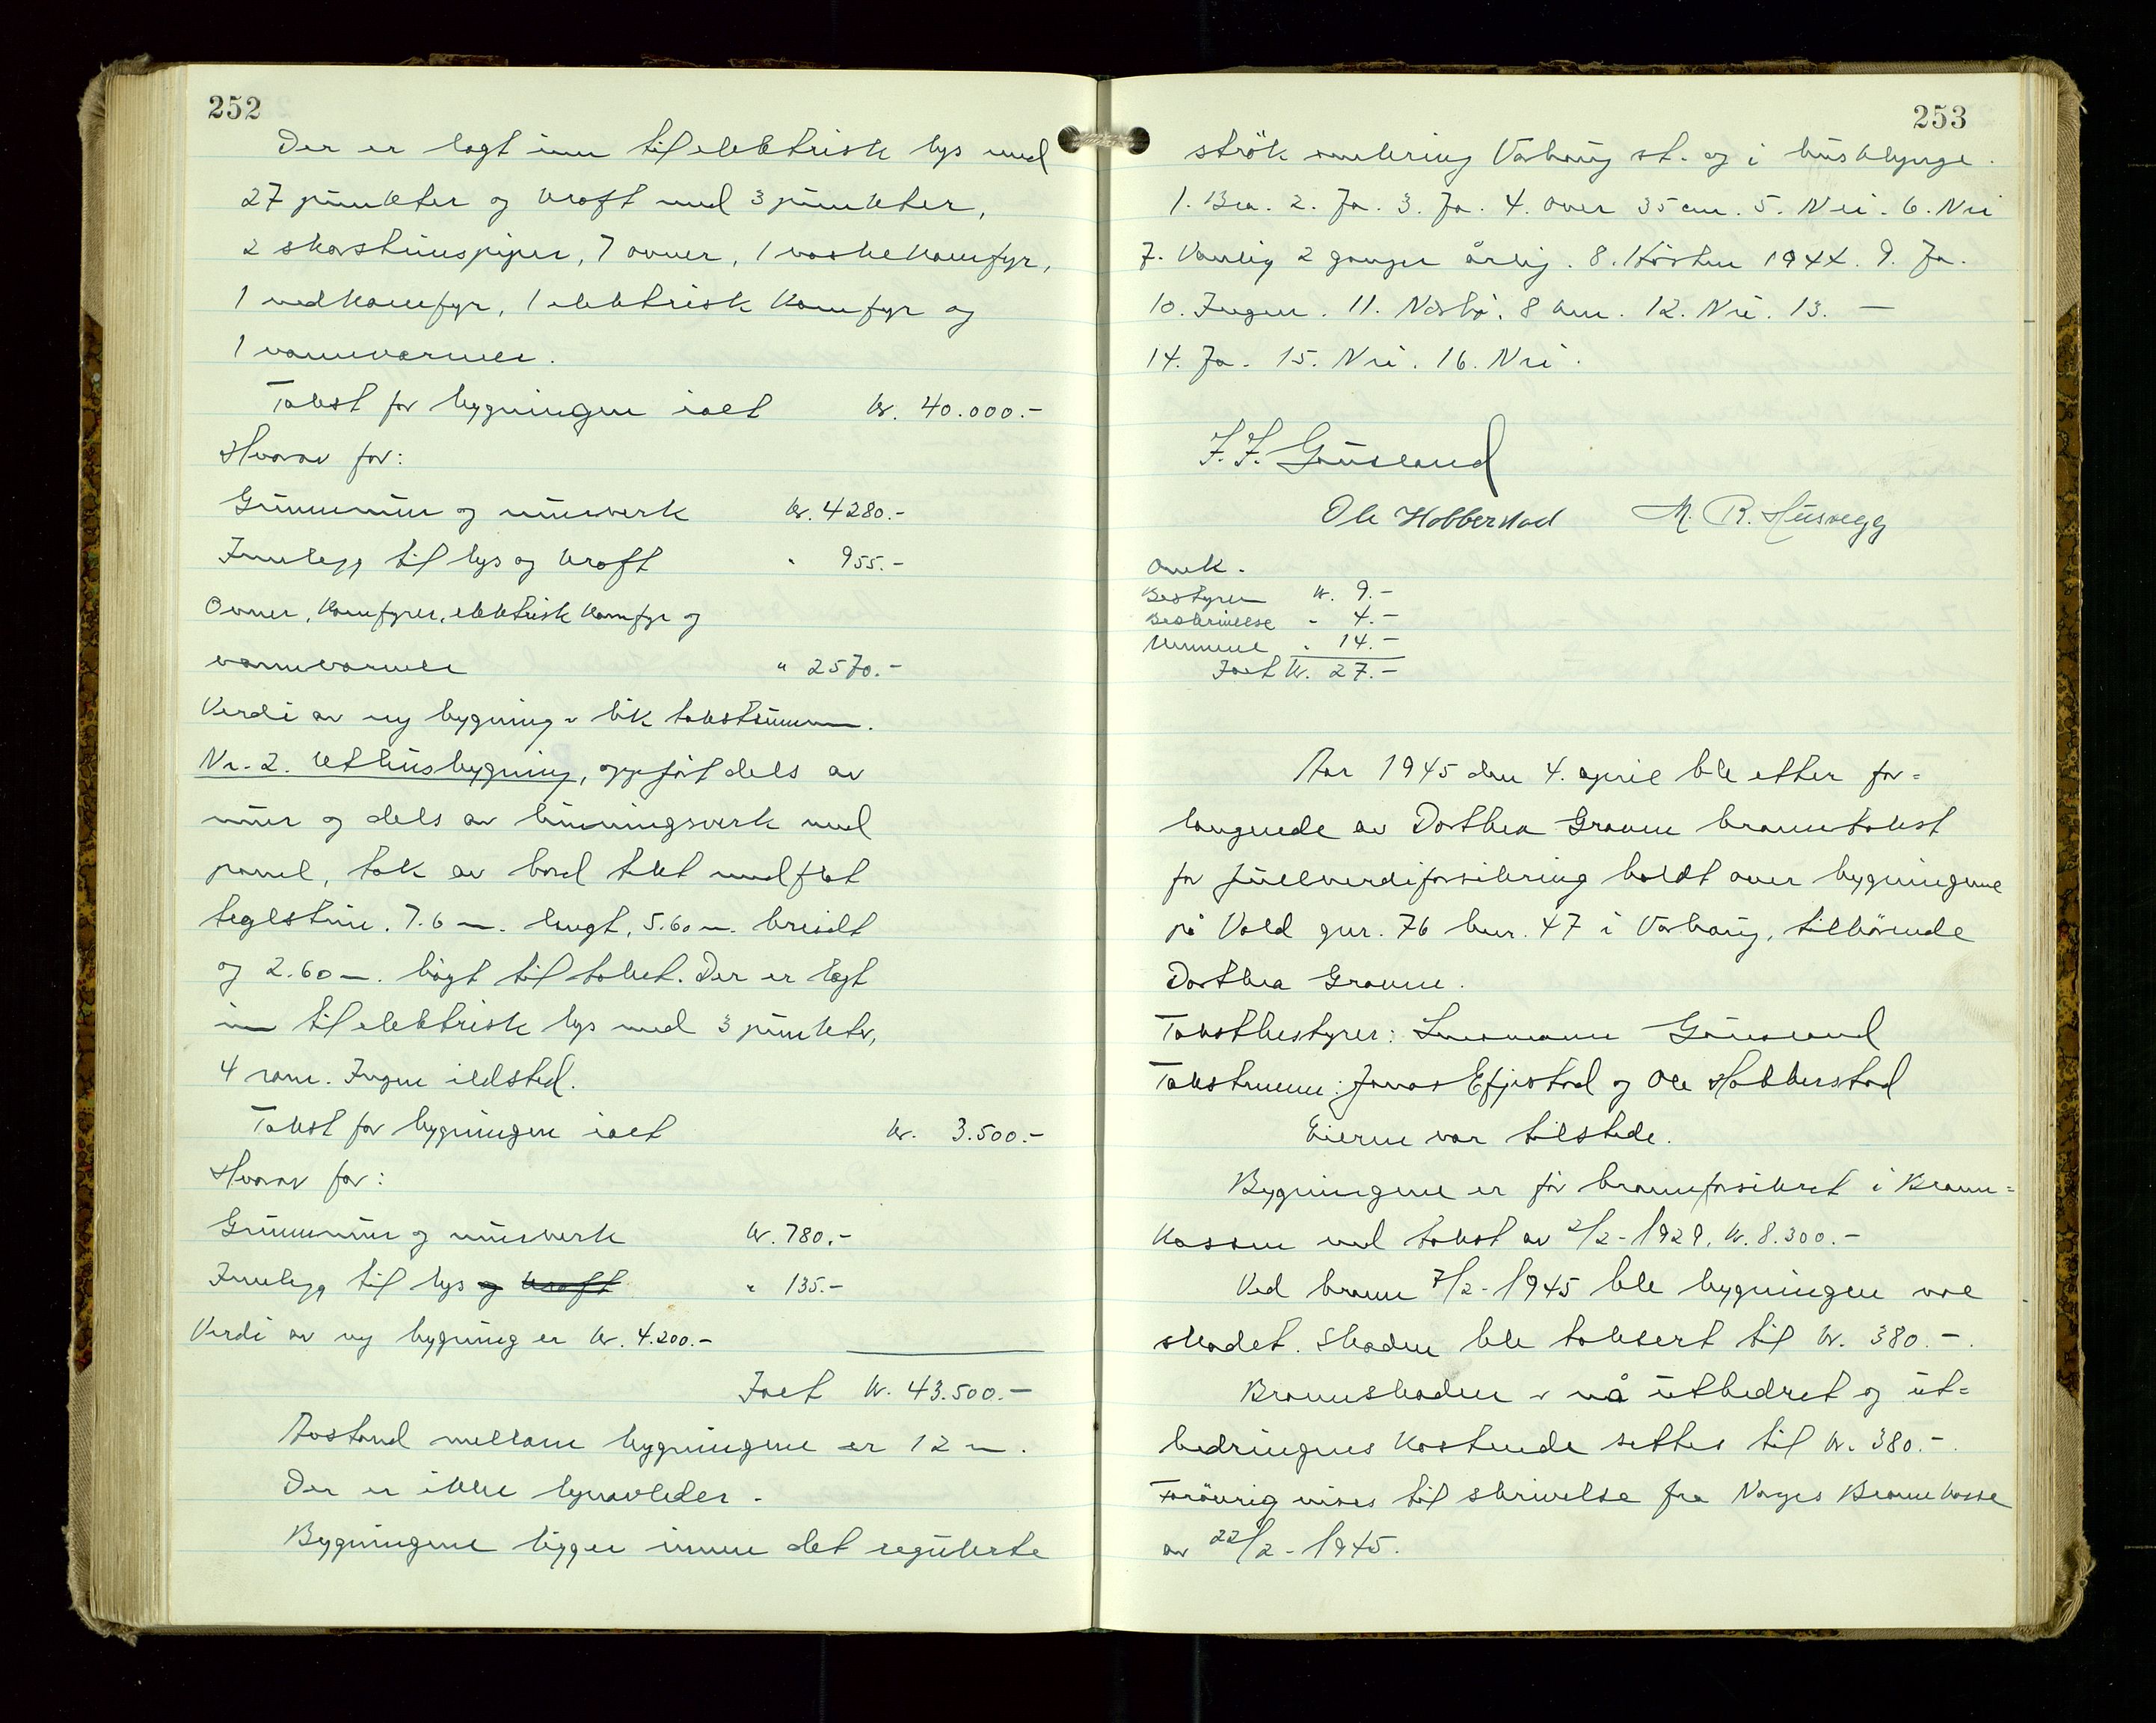 252
Der er lagt inn til elektrisk lys med
27 punkter og kraft med 3 punkter,
2 skorsteinspiper, 7 ovner, 1 vaskekomfyr,
1 vedkomfyr, 1 elektrisk komfyr og
1 vannvarmer.
Takst for bygningen ialt kr. 40.000.-
Hvorav for:
Grunnmur og murverk kr. 4280.-
Innlegg til lys og kraft " 955.-
Ovner, komfyrer, elektrisk komfyr og
vannvarmer " 2570.-
Verdi av ny bygning = lik takstsummen.
Nr. 2. Uthusbygning, oppført dels av
mur og dels av bindningsverk med
panel, tak av bord tekt med flat
teglstein. 7.6 m. langt, 5.60 m. breidt
og 2.60 m. høgt til taket. Der er lagt
inn til elektrisk lys med 3 punkter,
4 rom. Ingen ildsted.
Takst for bygningen ialt kr. 3.500.-
Hvorav for:
Grunnmur og murverk kr. 780.-
Innlegg til lys og kraft " 135.-
Verdi av ny bygning er kr. 4.200.-
Ialt kr. 43.500.-
Avstand mellom bygningene er 12 m.
Der er ikke lynavleder.
Bygningene ligger innen det regulerte
253
strök omkring Varhaug st. og i husklynge.
1. Bra. 2. Ja. 3. Ja. 4. Over 35 cm. 5. Nei. 6. Nei
7. Vanlig 2 ganger årlig. 8. Hösten 1944. 9. Ja.
10. Ingen. 11. Nærbø. 8 km. 12. Nei. 13. —
14. Ja. 15. Nei. 16. Nei.
Gausland
Ole Hobberstad M. R. Husvegg
Omk.
Bestyrer kr. 9.-
Beskrivelse " 4.-
Mennene " 14.-
Ialt kr. 27.-
Aar 1945 den 4. april ble etter for=
langende av Dorthea Gravne branntakst
for fullverdiforsikring holdt over bygningene
på Vold gnr. 76 bnr. 47 i Varhaug, tilhörende
Dorthea Gravne.
Takstbestyrer: Lensmann Gausland
Takstmenn: Jonas Efjestad og Ole Hobberstad
Eieren var tilstede.
Bygningene er før brannforsikret i Brann=
kassen ved takst av 2/2-1929, kr. 8.300.-
Ved brann 7/2-1945 ble bygningen
skadet. Skaden ble taksert til kr. 380.-.
Brannskaden er nå utbedret og ut=
bedringens kostende settes til kr. 380.-.
Forövrig vises til skrivelse fra Norges Brannkasse
av 22/2-1945.